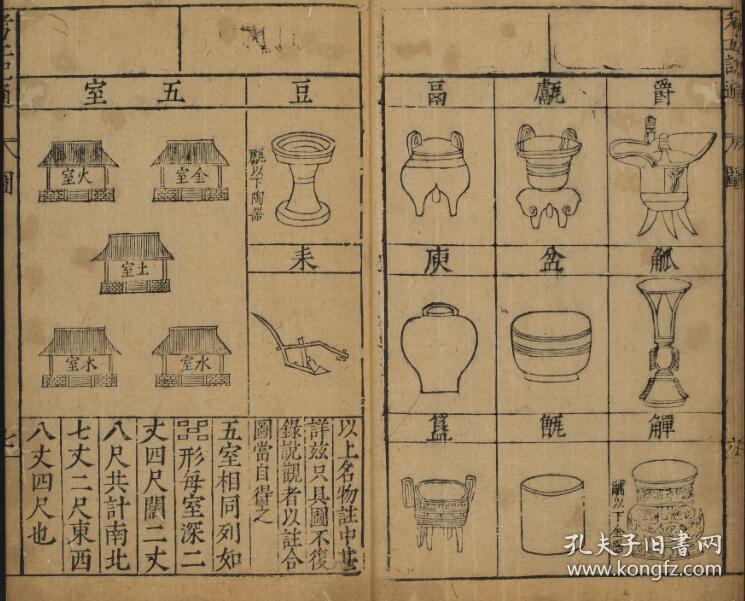 爵
甗
鬲
觚
盆
庾
觶
甑
簋
甗以下陶器
豆
耒
五室
金室
火室
土室
水室
木室
以上名物註中甚
詳兹只具圖不復
錄説觀者以註合
圖當自得之
五室相同列如
形每室深二
丈四尺闊二丈
八尺共計南北
七丈二尺東西
八丈四尺也
七
孔夫子旧书网
www.kongfz.com